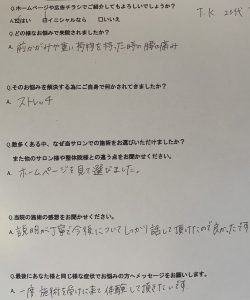 Q.ホームページや広告チラシでご紹介してもよろしいでしょうか?
T.K 20代
A.①はい ②イニシャルなら □いいえ
Q.どの様なお悩みで受院されましたか?
A. 前かがみや重い荷物を持った時の腰の痛み
Q.そのお悩みを解決する為にご自身で何かされてきましたか?
A. ストレッチ
Q.数多くある中、なぜ当サロンでの施術をお選びいただけましたか?
また他のサロン様や整体院様との違う点をお聞かせください。
A. ホームページを見て選びました。
Q.当院の施術の感想をお聞かせください。
A. 説明が丁寧で今後についてしっかり話して頂けたので良かったです
Q.最後にあなた様と同じ様な症状でお悩みの方へメッセージをお願いします。
A. 一度施術を受けに来て体験して頂きたいです